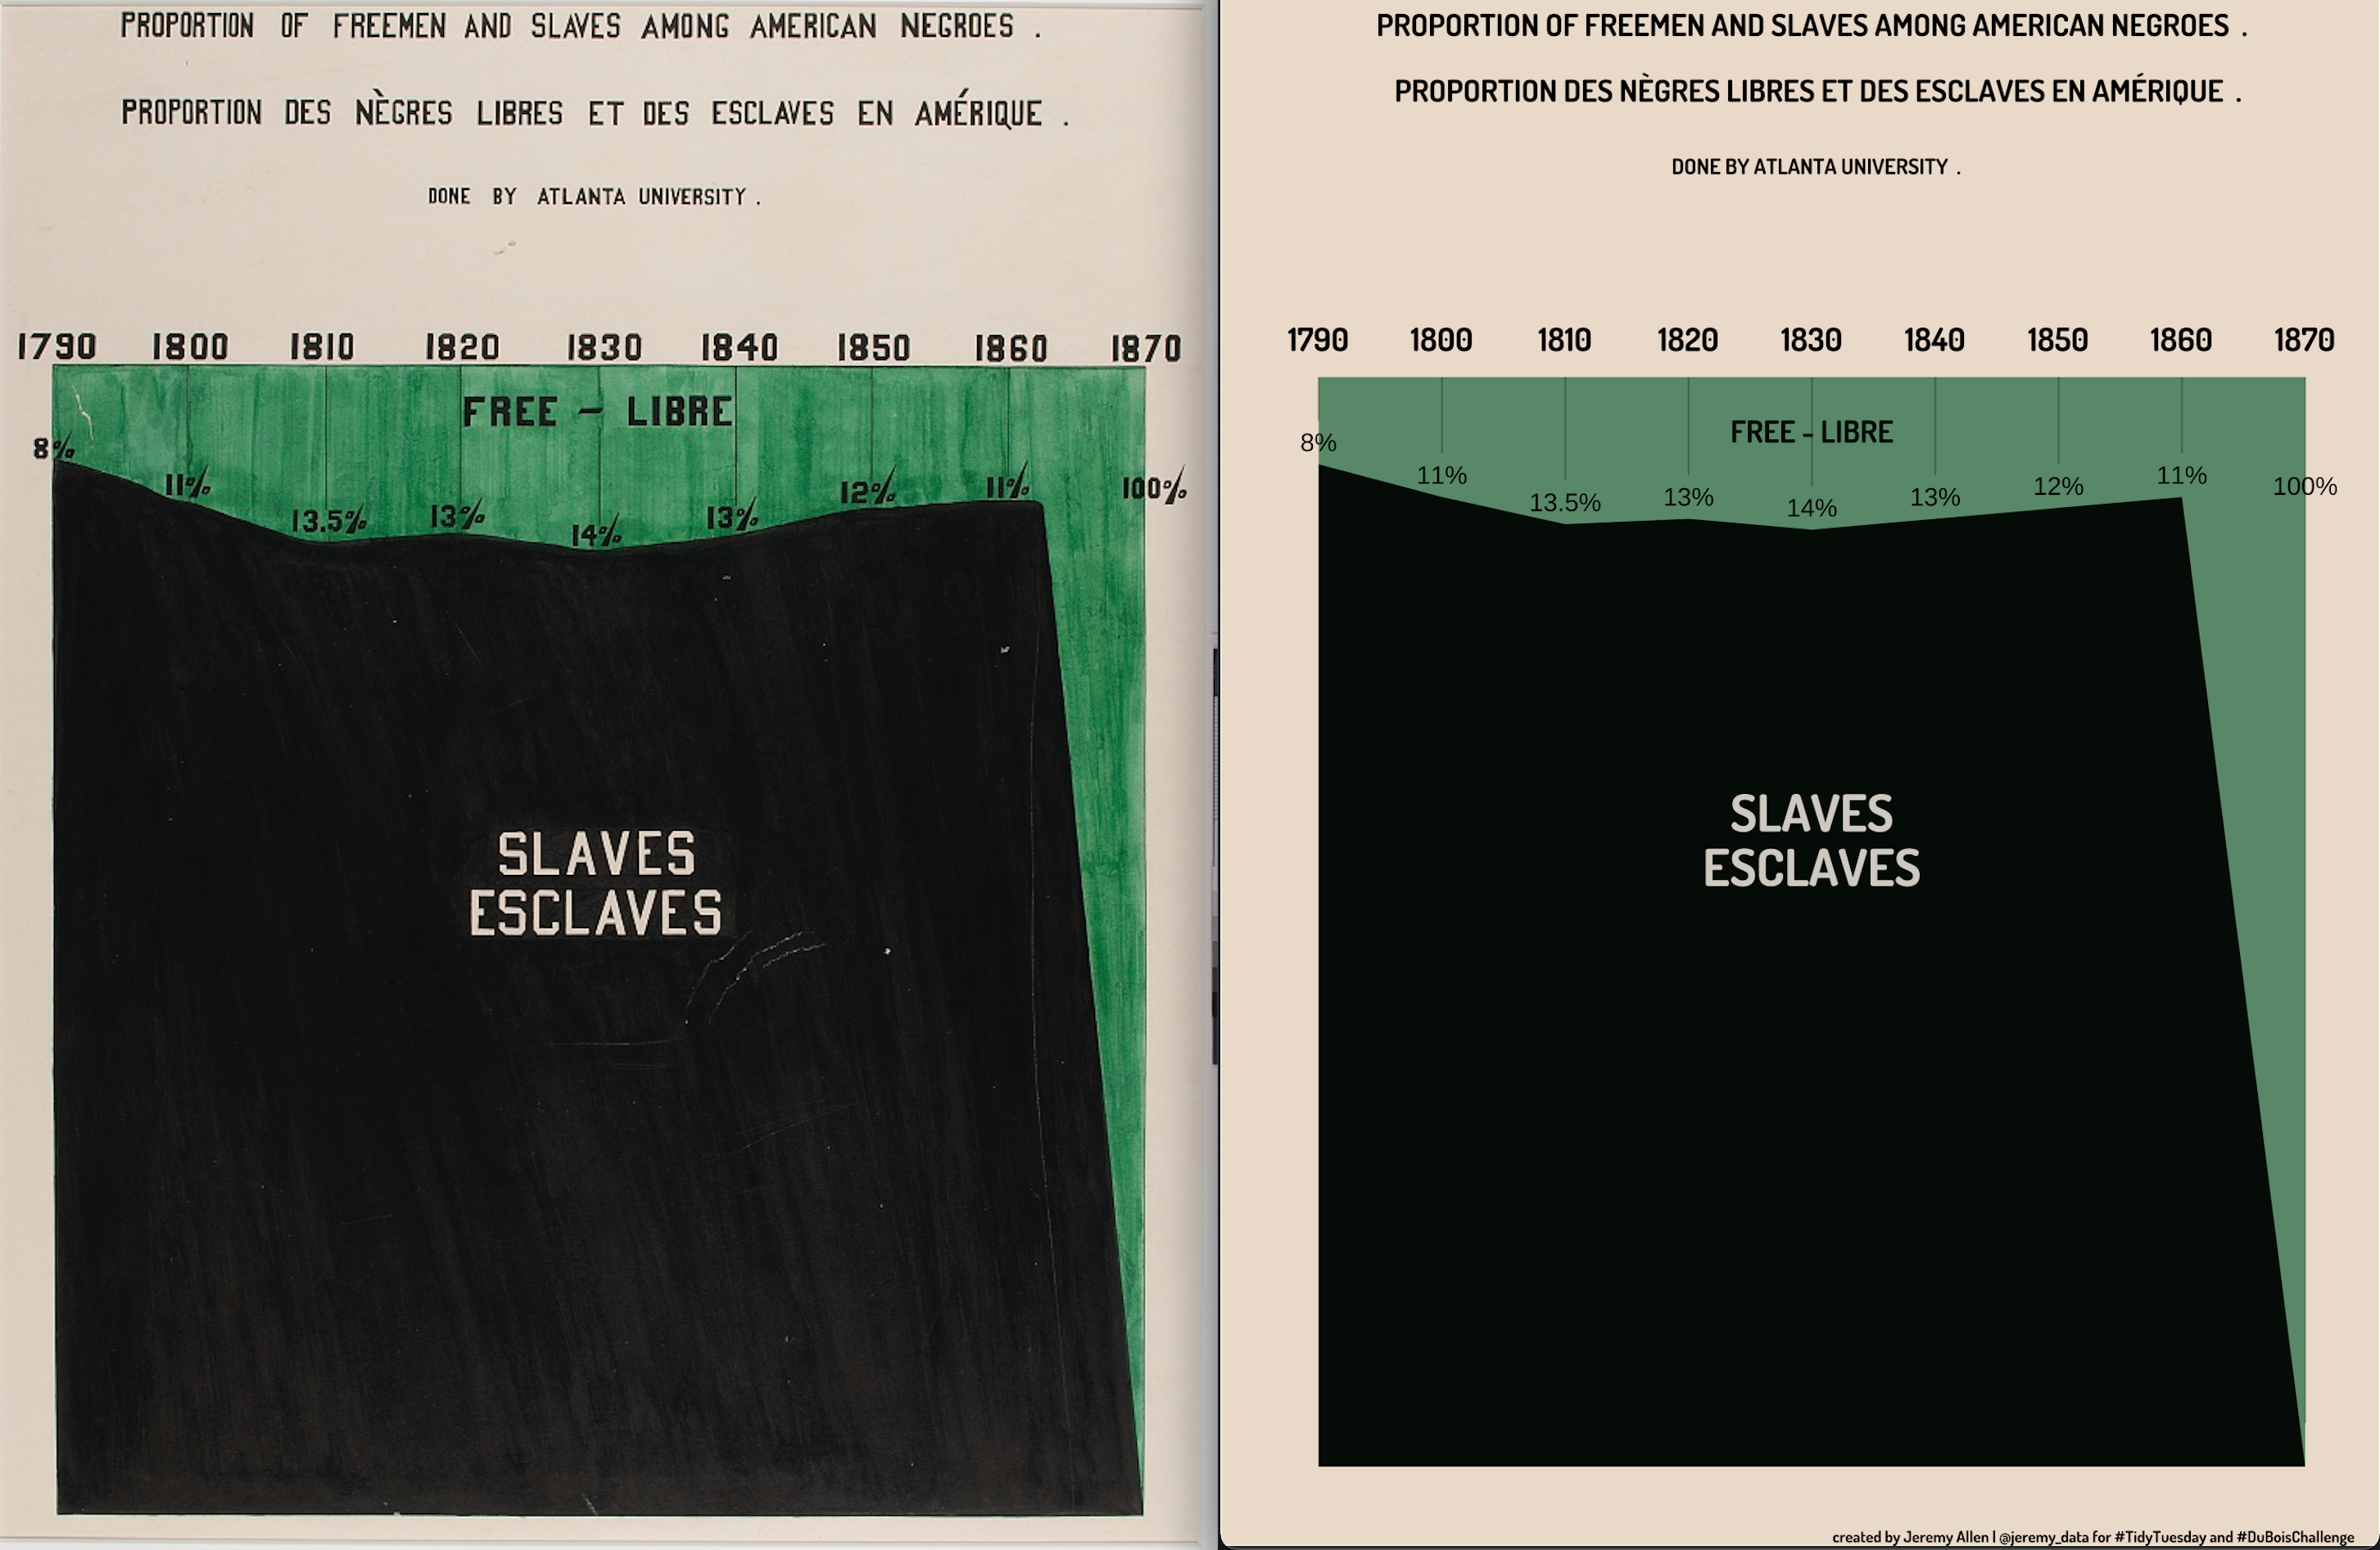 PROPORTION OF FREEMEN AND SLAVES AMONG AMERICAN NEGROES .
PROPORTION DES NÈGRES LIBRES ET DES ESCLAVES EN AMÉRIQUE .
DONE BY ATLANTA UNIVERSITY .
1790 1800 1810 1820 1830 1840 1850 1860 1870
FREE – LIBRE
8% 11% 13.5% 13% 14% 13% 12% 11% 100%
SLAVES
ESCLAVES
PROPORTION OF FREEMEN AND SLAVES AMONG AMERICAN NEGROES .
PROPORTION DES NÈGRES LIBRES ET DES ESCLAVES EN AMÉRIQUE .
DONE BY ATLANTA UNIVERSITY .
1790 1800 1810 1820 1830 1840 1850 1860 1870
FREE - LIBRE
8% 11% 13.5% 13% 14% 13% 12% 11% 100%
SLAVES
ESCLAVES
created by Jeremy Allen | @jeremy_data for #TidyTuesday and #DuBoisChallenge